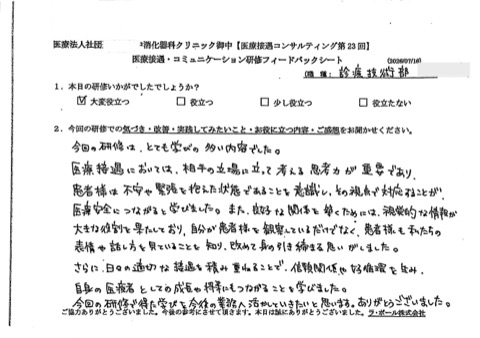 医療法人社団 消化器科クリニック御中【医療接遇コンサルティング第23回】
医療接遇・コミュニケーション研修フィードバックシート (2026/07/16)
(職種: 診療技術部
1. 本日の研修いかがでしたでしょうか?
☑ 大変役立つ □ 役立つ □ 少し役立つ □ 役立たない
2. 今回の研修での気づき・改善・実践してみたいこと・お役に立つ内容・ご感想をお聞かせください。
今回の研修は、とても学びの多い内容でした。
医療接遇においては、相手の立場に立って考える思考力が重要であり、
患者様は不安や緊張を抱えた状態であることを意識し、その視点で対応することが、
医療安全につながると学びました。また、良好な関係を築くためには、視覚的な情報が
大きな役割を果たしており、自分が患者様を観察しているだけでなく、患者様も私たちの
表情や話し方を見ていることを知り、改めて身の引き締まる思いがしました。
さらに、日々の適切な接遇を積み重ねることで、信頼関係や好循環を生み、
自身の医療者としての成長や将来にもつながることを学びました。
今回の研修で得た学びを今後の業務へ活かしていきたいと思います。ありがとうございました。
ご協力ありがとうございました。今後の参考にさせて頂きます。本日は誠にありがとうございました。ラ・ポール株式会社